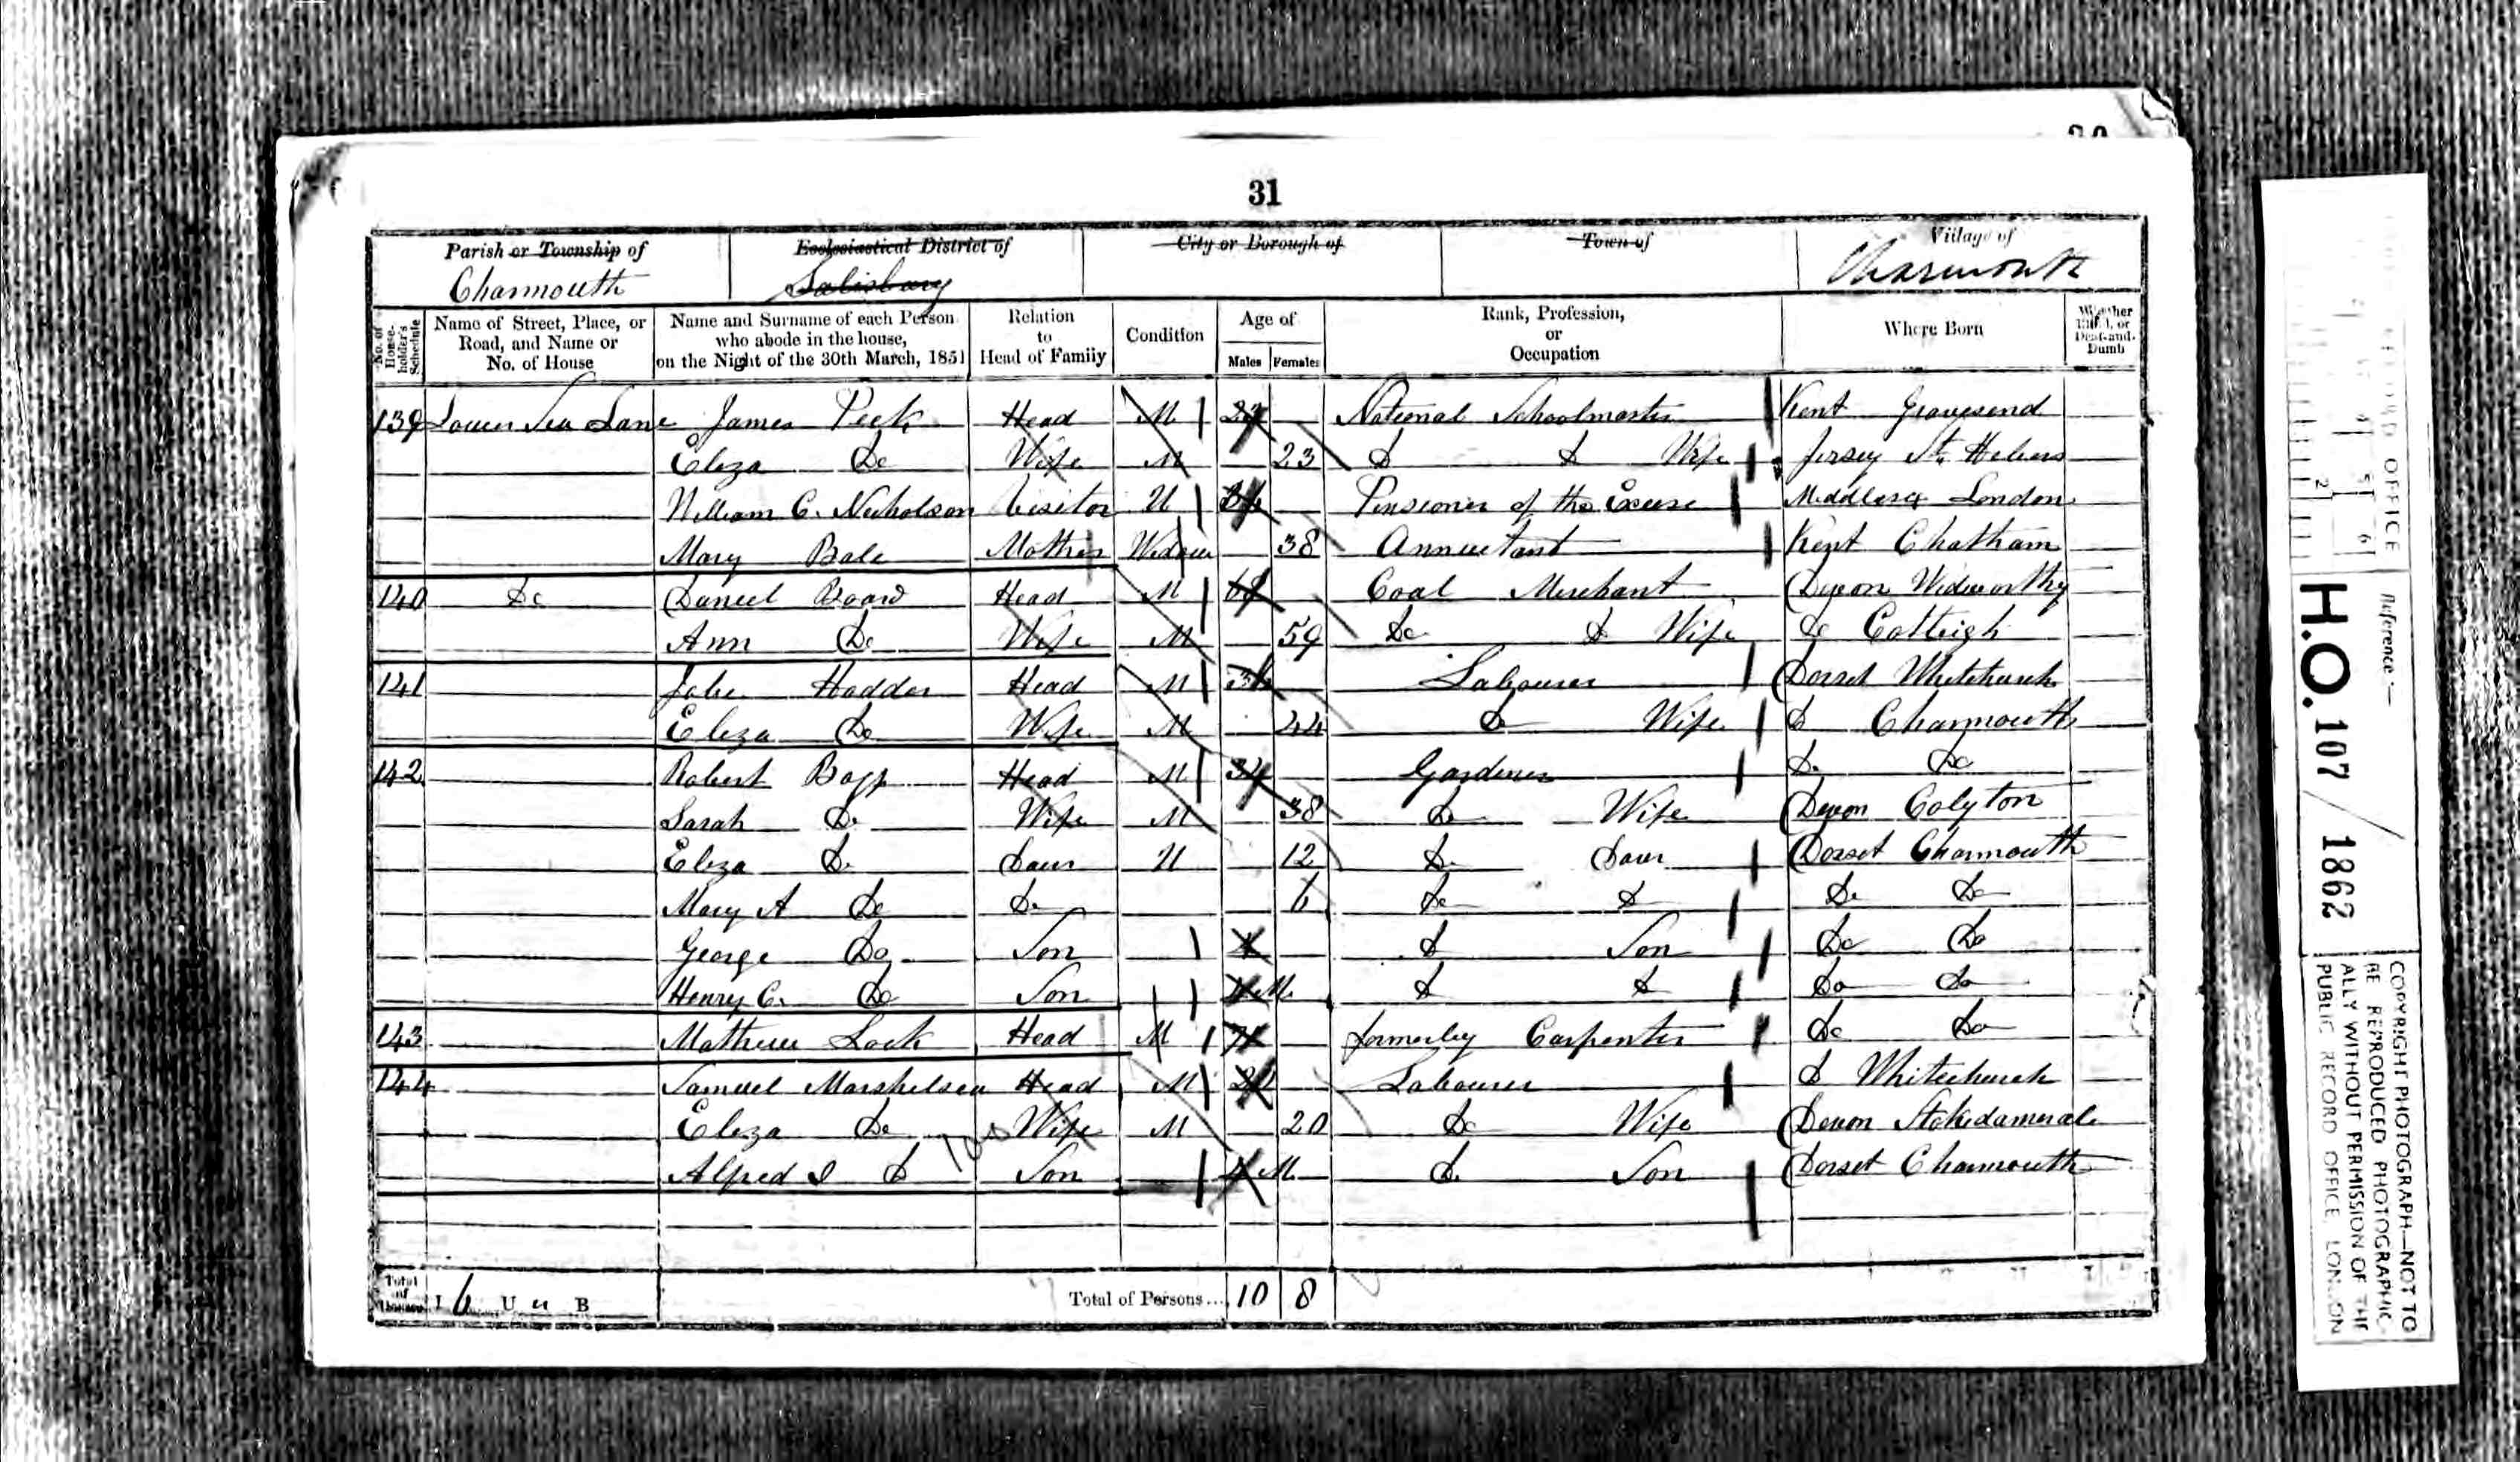 31
Parish or Township of Ecclesiastical District of City or Borough of Town of Village of
Charmouth Salisbury Charmouth
No. of House-holder's Schedule Name of Street, Place, or Road, and Name or No. of House Name and Surname of each Person who abode in the house, on the Night of the 30th March, 1851 Relation to Head of Family Condition Age of Males Females Rank, Profession, or Occupation Where Born Whether Blind, or Deaf-and-Dumb
139 Lower Sea Lane James Peek Head M National Schoolmaster Kent Gravesend
Eliza Do Wife M 23 D D Wife Jersey St. Heliers
William C. Nicholson Visitor U Pensioner of the Excise Middlesex London
Mary Bale Mother Widow 38 Annuitant Kent Chatham
140 Do Daniel Board Head M Coal Merchant Devon Widworthy
Ann Do Wife M 59 Do D Wife Do Cotleigh
141 Hodder Head M Labourer Dorset Whitchurch
Eliza Do Wife M 44 Do Wife D Charmouth
142 Robert Head M 34 Gardener D. Do
Sarah D. Wife M 38 Do Wife Devon Colyton
Eliza D. Daur U 12 D. Daur Dorset Charmouth
Mary A Do D. 6 Do D D. Do
George Do Son 4 D Son Do Do
Henry C. Do Son M. D D Do Do
143 Mathew Lock Head M formerley Carpenter Do Do
144 Samuel Marshelsea Head M Labourer D Whitechurch
Eliza Do Wife M 20 Do Wife Devon Stokedamerale
Alfred I D Son M D. Son Dorset Charmouth
Total of Houses I 6 U B Total of Persons... 10 8
PUBLIC RECORD OFFICE
Reference:—
H.O. 107 / 1862
COPYRIGHT PHOTOGRAPH—NOT TO
BE REPRODUCED PHOTOGRAPHIC-
ALLY WITHOUT PERMISSION OF THE
PUBLIC RECORD OFFICE, LONDON